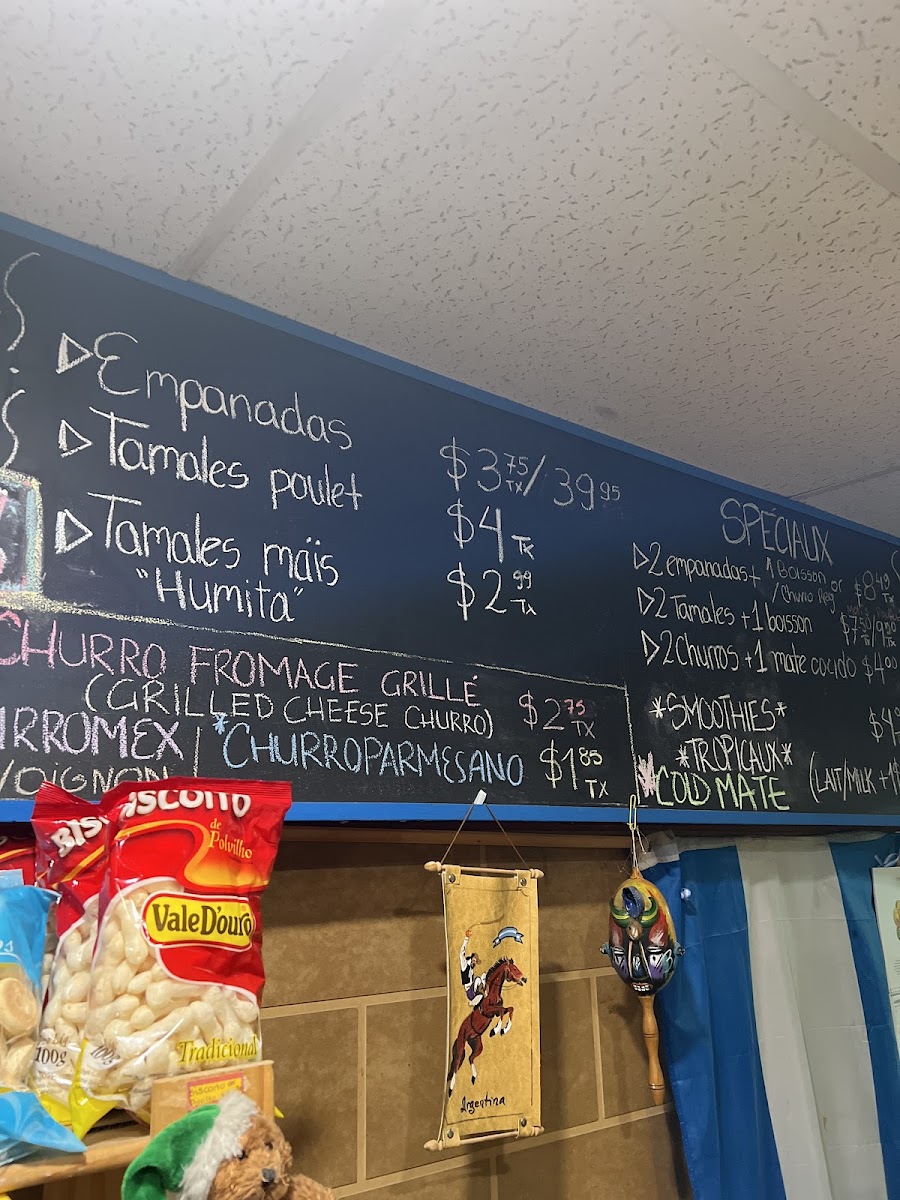 ▷Empanadas $3.75 TX/39.95
▷Tamales poulet $4 TX
▷Tamales maïs $2.99 TX
"Humita"
CHURRO FROMAGE GRILLÉ
(GRILLED CHEESE CHURRO) $2.75 TX
*CHURROPARMESANO $1.85 TX
OIGNON
SPÉCIAUX
▷2 empanadas + 1 Boisson or $8.49 TX
/Churro Reg
▷2 Tamales + 1 boisson
▷2 Churros + 1 mate cocido $4.00
*SMOOTHIES*
*TROPICAUX*
*COLD MATE (LAIT/MILK +
BISCOITO
de Polvilho
ValeD'ouro
Tradicional
100g
100g
Argentina